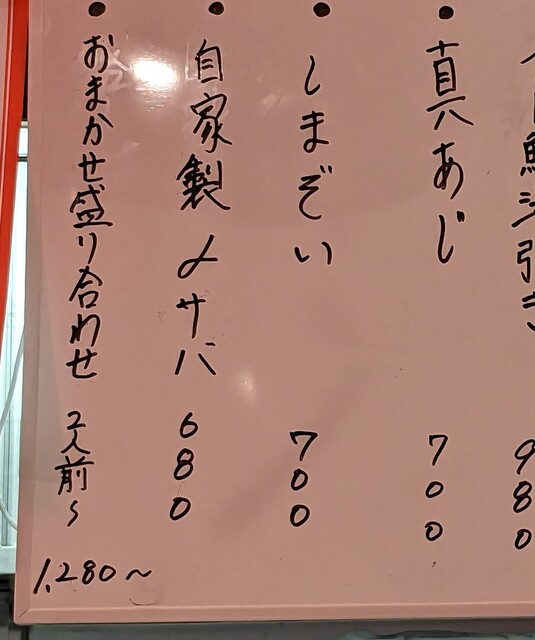 沙引き 980
真あじ 700
しまぞい 700
自家製〆サバ 680
おまかせ盛り合わせ 2人前～
1,280～